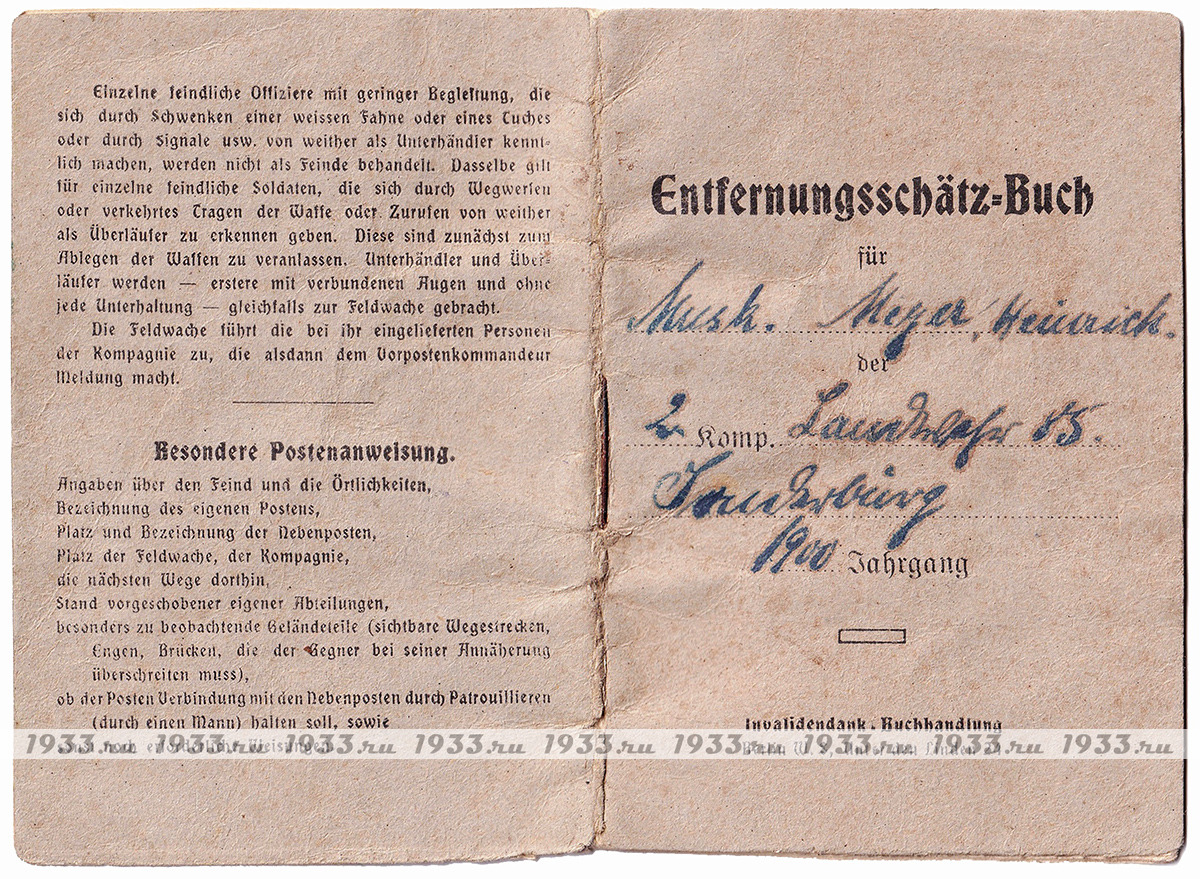 Einzelne feindliche Offiziere mit geringer Begleitung, die
sich durch Schwenken einer weissen Fahne oder eines Tuches
oder durch Signale usw. von weither als Unterhändler kennt-
lich machen, werden nicht als Feinde behandelt. Dasselbe gilt
für einzelne feindliche Soldaten, die sich durch Wegwerfen
oder verkehrtes Tragen der Waffe oder Zurufen von weither
als Überläufer zu erkennen geben. Diese sind zunächst zum
Ablegen der Waffen zu veranlassen. Unterhändler und Über-
läufer werden — erstere mit verbundenen Augen und ohne
jede Unterhaltung — gleichfalls zur Feldwache gebracht.
Die Feldwache führt die bei ihr eingelieferten Personen
der Kompagnie zu, die alsdann dem Vorpostenkommandeur
Meldung macht.
Besondere Postenanweisung.
Angaben über den Feind und die Örtlichkeiten,
Bezeichnung des eigenen Postens,
Platz und Bezeichnung der Nebenposten,
Platz der Feldwache, der Kompagnie,
die nächsten Wege dorthin,
Stand vorgeschobener eigener Abteilungen,
besonders zu beobachtende Geländeteile (sichtbare Wegestrecken,
Engen, Brücken, die der Gegner bei seiner Annäherung
überschreiten muss),
ob der Posten Verbindung mit den Nebenposten durch Patrouillieren
(durch einen Mann) halten soll, sowie
sonst noch erforderliche Weisungen.
Entfernungsschätz-Buch
für
Musk. Meyer, Heinrich.
der
2 Komp. Landwehr 85.
Sonderburg
1900 Jahrgang
Invalidendank, Buchhandlung
Berlin W. Unter den Linden 24
1933.ru 1933.ru 1933.ru 1933.ru 1933.ru 1933.ru 1933.ru 1933.ru 1933.ru